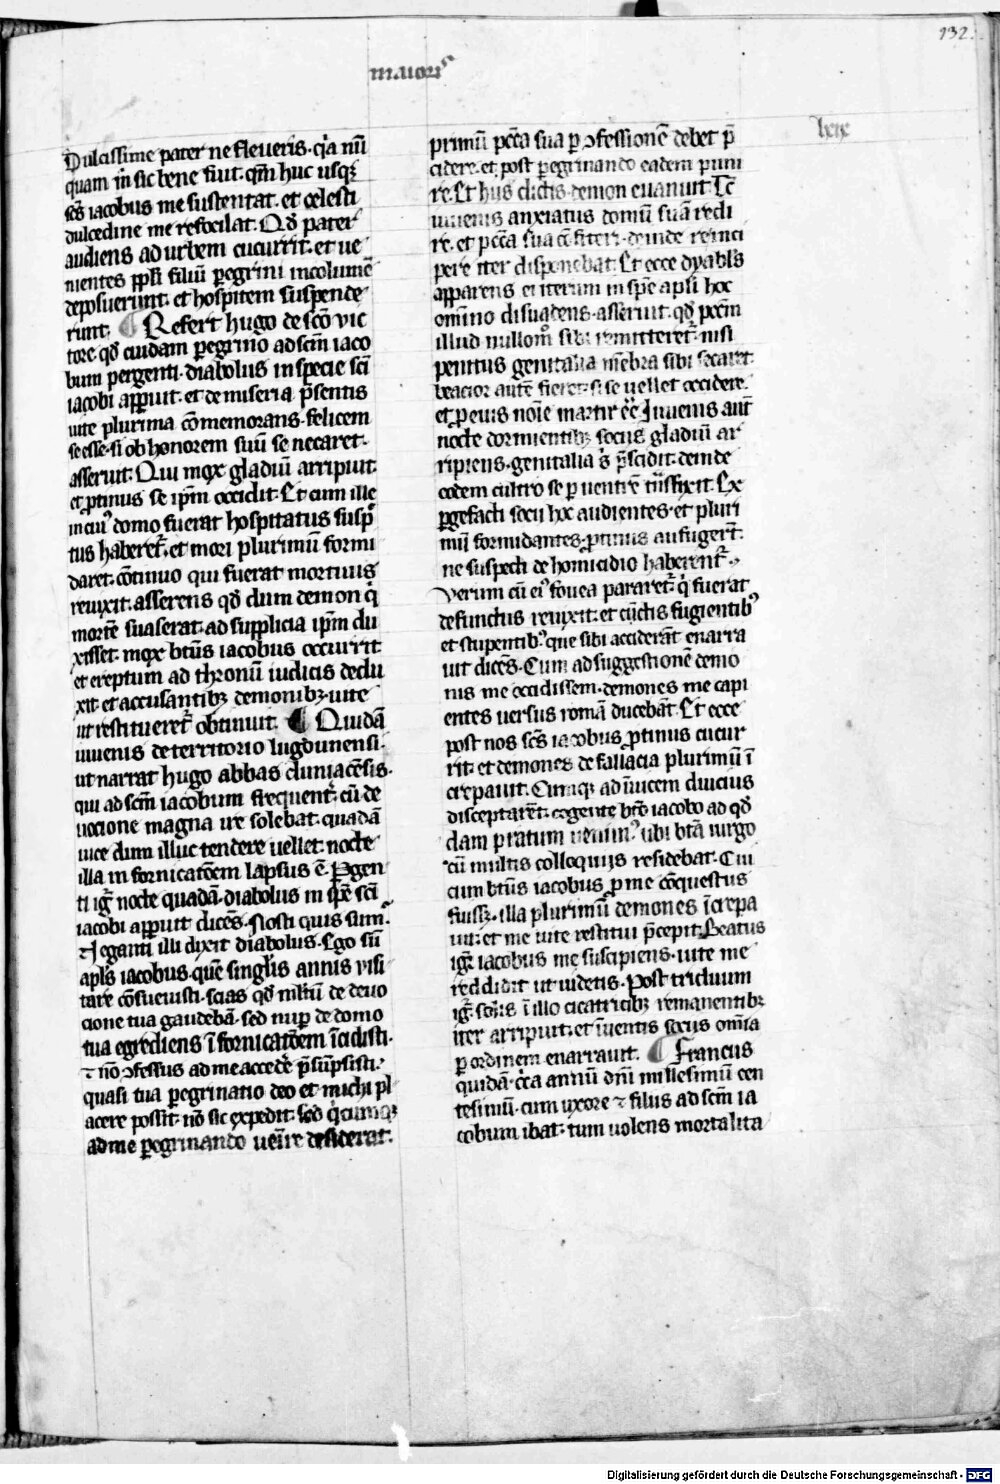 132.
maioris
lxix
Dulcissime pater ne fleueris. qͥa nū
quam m̄ sic bene fuit. qm̄ huc usqꝫ
sc̄s iacobus me sustentat. et celesti
dulcedine me refocilat. Qđ pater
audiens ad urbem cucurrit. et ue
nientes ppl̄i filiū ꝑegrini incolumē
deposuerunt. et hospitem suspende
runt. ¶ Refert hugo de sc̄o vic
tore qđ cuidam ꝑegrino ad sc̄m iaco
bum pergenti. diabolus in specie sc̄i
iacobi apꝑuit. et de miseria p̄sentis
uite plurima cōmemorans. felicem
se esse. si ob honorem suū se necaret.
asseruit. Qui mox gladiū arripuit
et ꝓtinus se ip̄m occidit. Et cum ille
in cuiꝰ domo fuerat hospitatus susp̄
tus haberet᷑. et mori plurimū formi
daret. cōtinuo qui fuerat mortuus
reuixit. asserens qđ dum demon qͥ
mortē suaserat. ad supplicia ip̄m du
xisset. mox btūs iacobus occurrit
et ereptum ad thronū iudicis dedu
xit. et accusantibꝫ demonibꝫ. uite
ut restitueret᷑ obtinuit. ¶ Quidā
iuuenis de territorio lugdunensi.
ut narrat hugo abbas cluniacēsis.
qui ad sc̄m iacobum frequent᷑. cū de
uocione magna ire solebat. quadā
uice dum illuc tendere uellet. nocte
illa in fornicatōem lapsus ē. Pgen
ti igr̄ nocte quadā. diabolus in spē sc̄i
iacobi apꝑuit dicēs. Nosti quis sim.
Neganti illi dixit diabolus. Ego sū
apl̄s iacobus. quē singlis annis visi
tare cōsueuisti. scias qđ mltū de deuo
cione tua gaudebā. sed nuꝑ de domo
tua egrediens ī fornicatōem īcidisti.
⁊ nō ↄfessus ad me accedē p̄sūpsisti.
quasi tua ꝑegrinatio deo et michi pl
acere possit. nō sic expedit. sed qͥcumqꝫ
ad me ꝑegrinando ueīre desiderat.
primū pc̄c̄a sua ꝑ ↄfessionē debet p̄
cidere. et post ꝑegrinando eadem puni
re. Et hiis dictis demon euanuit. Tc̄
iuuenis anxiatus domū suā redi
re. et pc̄c̄a sua cōfiteri. deinde reinci
pere iter disponebat. Et ecce dyabls̄
apparens ei iterum in spē apl̄i hoc
omīno disuadens. asseruit. qđ pc̄cm̄
illud nullomͦ sibi remitteret᷑. nisi
penitus genitalia mēbra sibi secaret.
beacior autē fieret. si se uellet occidere.
et ꝑ eius noīe martir eē. Iuuenis aūt
nocte dormientibꝫ sociis gladiū ar
ripiens. genitalia s̄ p̄scidit. deinde
eodem cultro se ꝑ uentrē trāsfixit. Ex
ꝑgefacti socii hoc audientes. et pluri
mū formidantes. ꝓtinus aufugerēt.
ne suspecti de homicidio haberent᷑.
Verum cū eiꝰ fouea pararet᷑. qͥ fuerat
defunctus reuixit. et cūctis fugientibꝰ
et stupentibꝰ. que sibi acciderāt enarra
uit dicēs. Cum ad suggestionē demo
nis me occidissem. demones me capi
entes uersus romā ducebāt. Et ecce
post nos sc̄s iacobus ꝓtinus cucur
rit. et demones de fallacia plurimū ī
crepauit. Cumqꝫ ad īuicem diucius
disceptarēt. cogente btō iacobo ad qđ
dam pratum uenimꝰ. ubi btā uirgo
cū multis colloquiis residebat. Cui
cum btūs iacobus ꝓ me cōquestus
fuissꝫ. illa plurimū demones īcrepa
uit. et me uite restitui p̄cepit. Beatus
igr̄ iacobus me suscipiens. uite me
reddidit ut uidetis. Post triduum
igr̄. solis ī illo cicatricibꝫ remanentibꝫ
iter arripuit. et īuentis sociis omīa
ꝑ ordinem enarrauit. ¶ Francus
quidā. cͥca annū dn̄i millesimū cen
tesimū. cum uxore ⁊ filiis ad sc̄m ia
cobum ibat. tum uolens mortalita
Digitalisierung gefördert durch die Deutsche Forschungsgemeinschaft - DFG